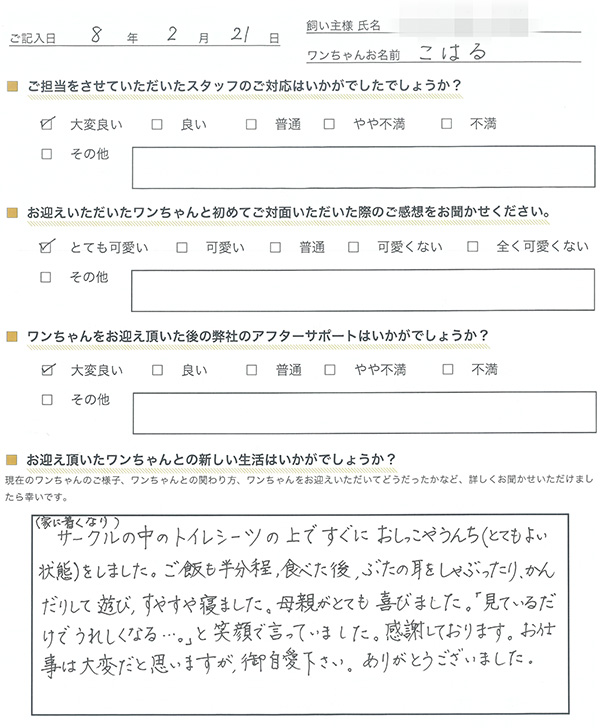 ご記入日 8 年 2 月 21 日
飼い主様 氏名
ワンちゃんお名前 こはる
■ ご担当をさせていただいたスタッフのご対応はいかがでしたでしょうか？
☑ 大変良い □ 良い □ 普通 □ やや不満 □ 不満
□ その他
■ お迎えいただいたワンちゃんと初めてご対面いただいた際のご感想をお聞かせください。
☑ とても可愛い □ 可愛い □ 普通 □ 可愛くない □ 全く可愛くない
□ その他
■ ワンちゃんをお迎え頂いた後の弊社のアフターサポートはいかがでしょうか？
☑ 大変良い □ 良い □ 普通 □ やや不満 □ 不満
□ その他
■ お迎え頂いたワンちゃんとの新しい生活はいかがでしょうか？
現在のワンちゃんのご様子、ワンちゃんとの関わり方、ワンちゃんをお迎えいただいてどうだったかなど、詳しくお聞かせいただけまし
たら幸いです。
(家に着くなり)
サークルの中のトイレシーツの上ですぐにおしっこやうんち(とてもよい
状態)をしました。ご飯も半分程,食べた後,ぶたの耳をしゃぶったり,かん
だりして遊び,すやすや寝ました。母親がとても喜びました。「見ているだ
けでうれしくなる…。」と笑顔で言っていました。感謝しております。お仕
事は大変だと思いますが,御自愛下さい。ありがとうございました。